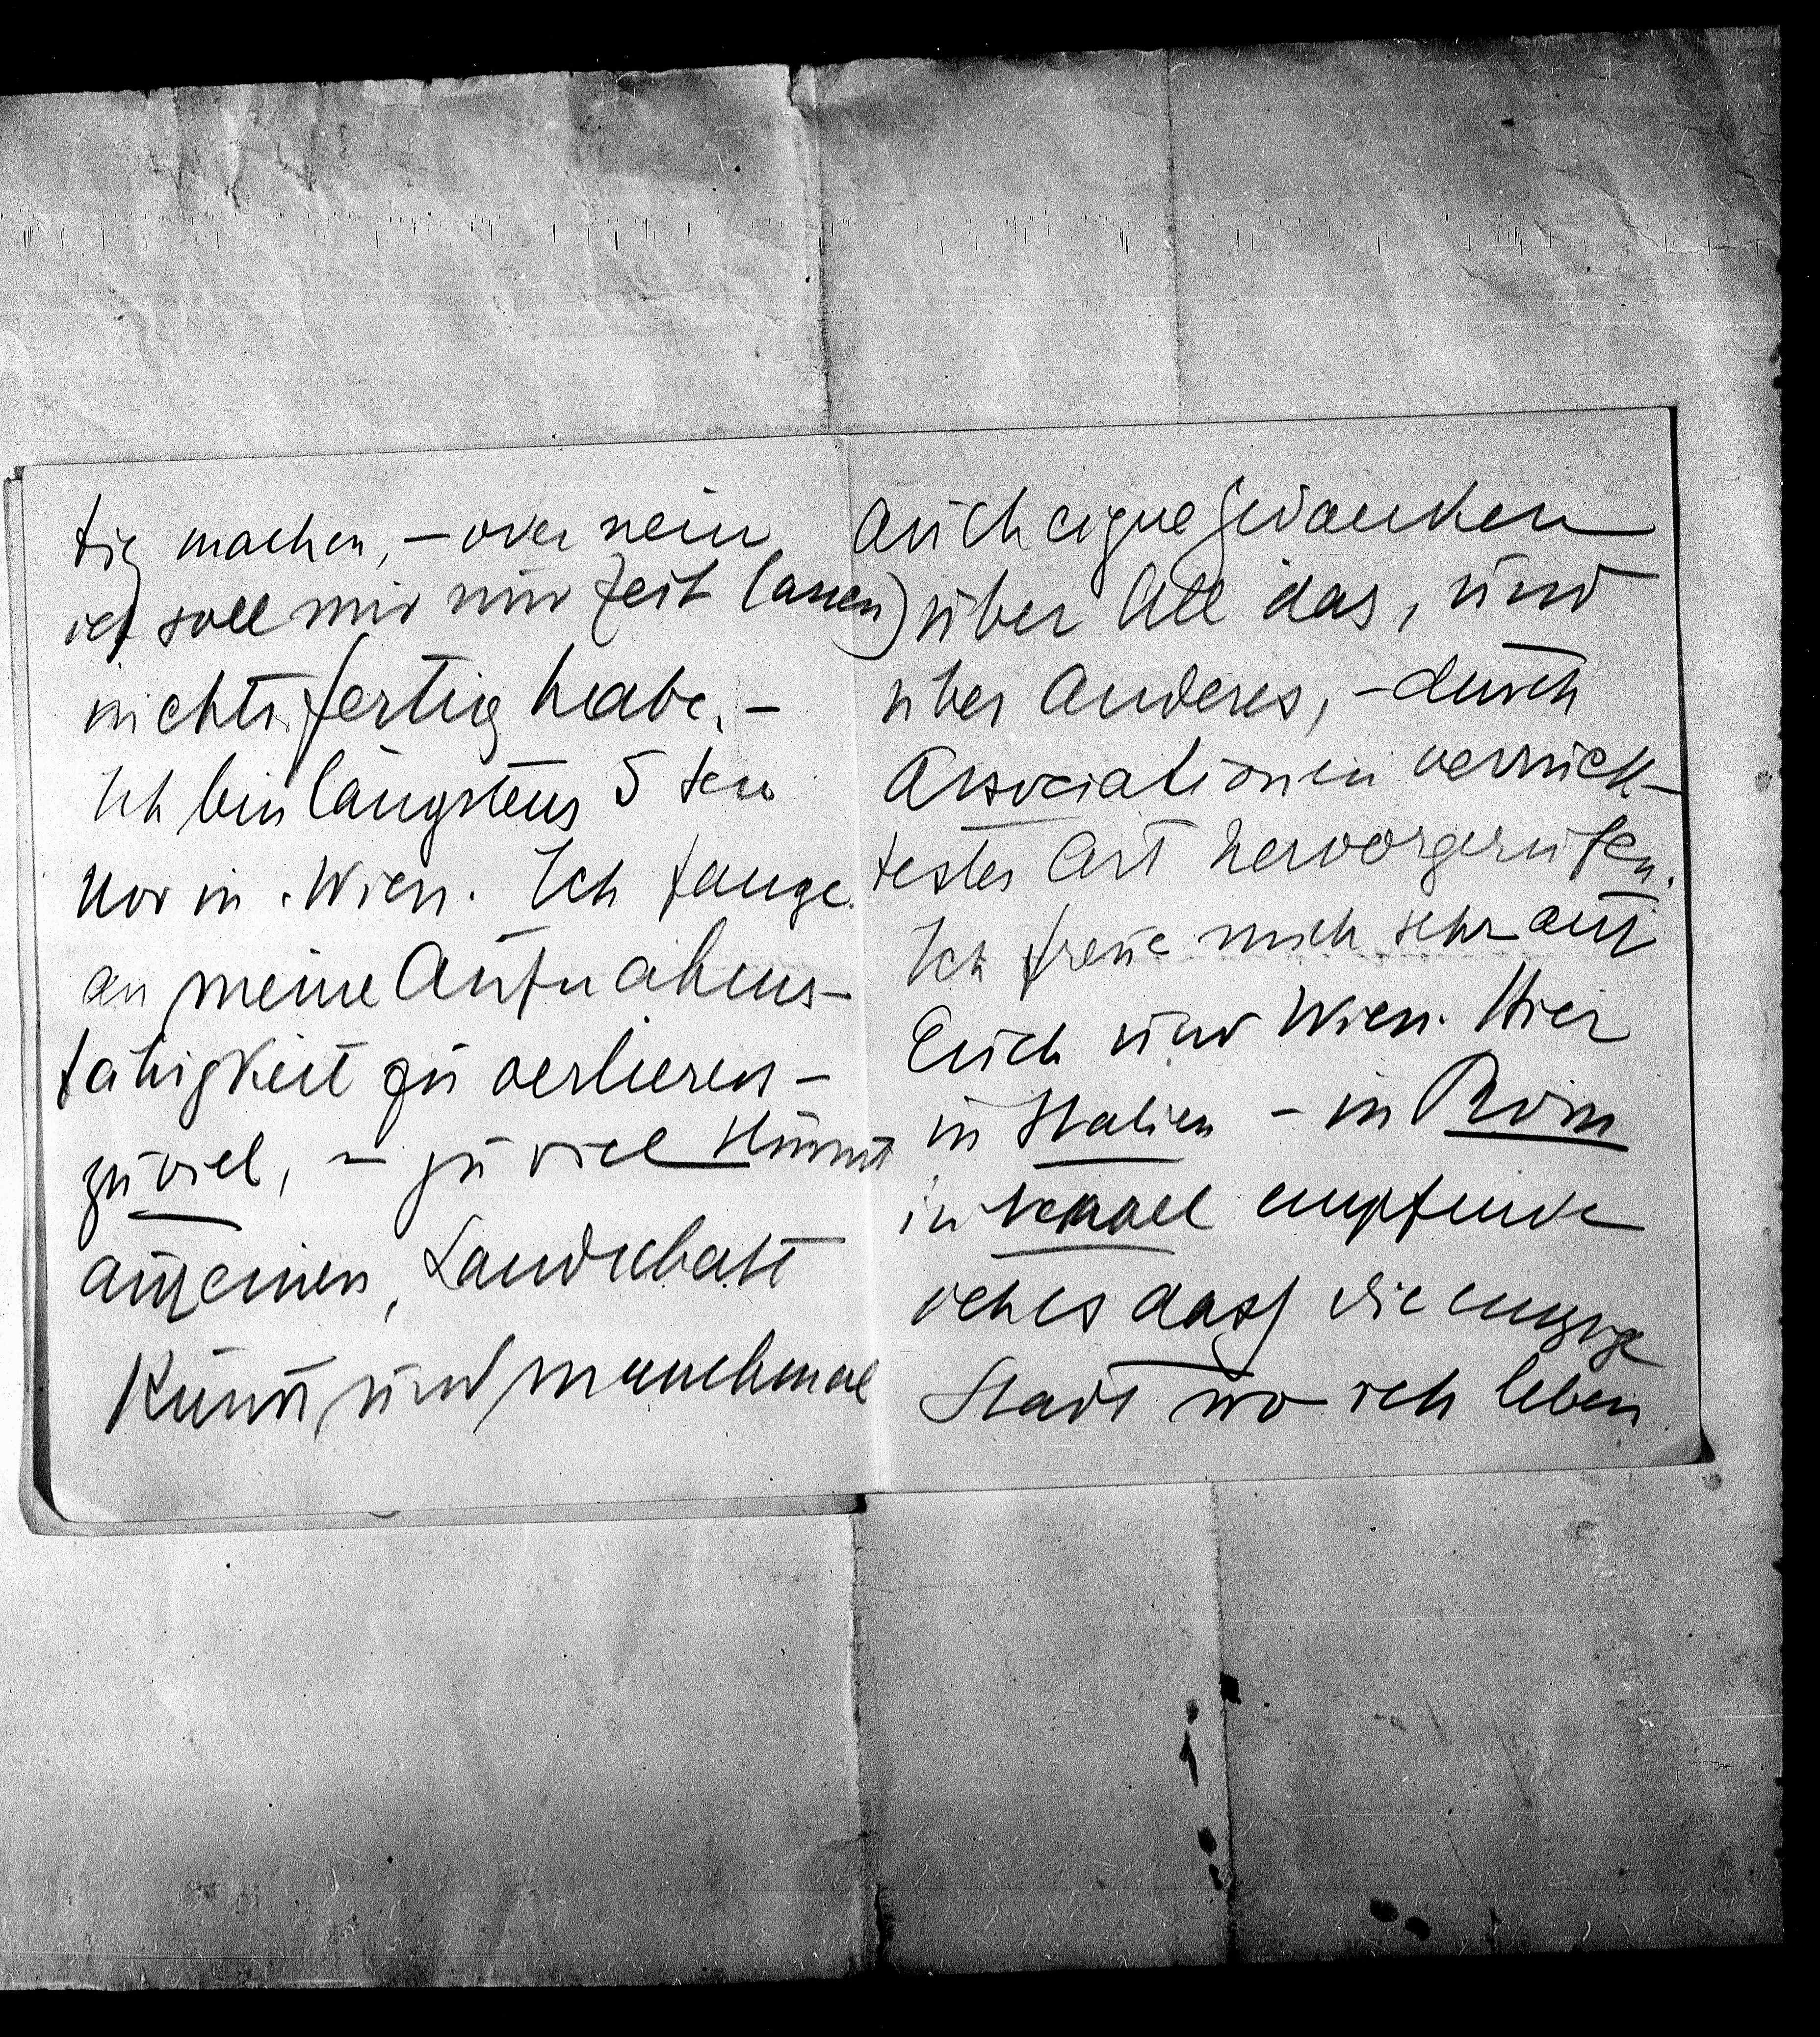 tig machen, – oder nein
ich soll mir nur Zeit lassen)
nichts fertig habe. –
Ich bin längstens 5ten
Nov in Wien. Ich fange
an meine Aufnahms-
fähigkeit zu verlieren –
zu viel, – zu viel stürmt
auf einen, Landschaft
Kunst und manchmal
auch eigne Gedanken
über All das, und
über Anderes, – durch
Associationen verrück-
tester Art hervorgerufen.
Ich freue mich sehr auf
Euch und Wien. Hier
in Italien – in Rom
in empfinde
ich es dass die einzige
Stadt wo ich leben